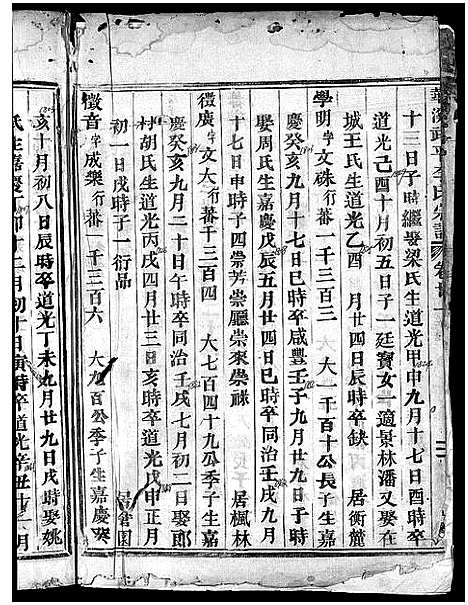 十三日子時繼娶梁氏生道光甲申九月十七日酉時卒
道光己酉十月初五日子一廷寶女一適景林潘又娶在
城王氏生道光乙酉 四日辰時卒缺 居衡麓
學明字文硃行蕃一千三百三 大一千百十公長子生嘉
慶癸亥九月十七日巳時卒咸豐壬子九月九日子時
娶周氏生嘉慶戊辰五月廿四日巳時卒同治壬戌九月
十七日申時子四崇芳崇廳崇來崇祿 居楓林
徵廣字文大行蕃千三百四 大七百四十九公季子生嘉
慶癸亥九月二十日午時卒同治壬戌七月初二日娶郎
村胡氏生道光丙戌四月廿三日亥時卒道光戊申正月
初一日戌時子一衍品
徵音字成樂行蕃一千三百六 大九百公季子生嘉慶癸
亥十月初八日辰時卒道光丁未九月廿九日戌時娶姚
氏生嘉慶丁卯十二月初十日寅時卒道光辛丑十一月